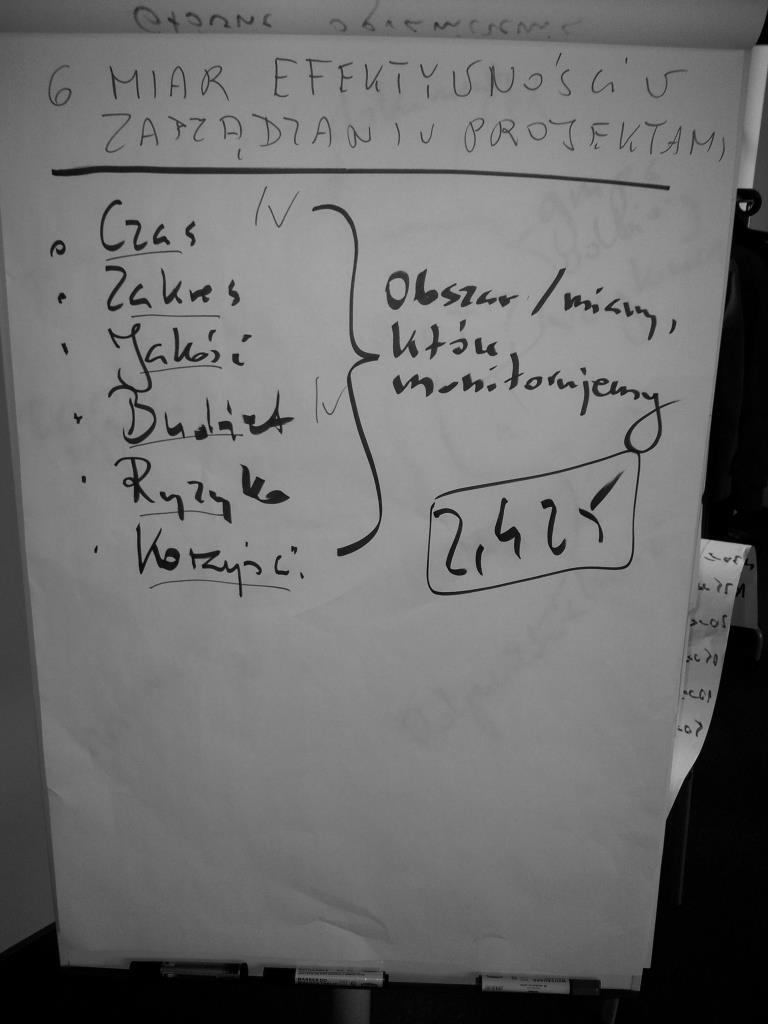 6 MIAR EFEKTYWNOŚCI W
ZARZĄDZANIU PROJEKTAMI
• Czas IV
• Zakres
• Jakość
• Budżet IV
• Ryzyko
• Korzyści
Obszar/miary,
które
monitorujemy
2,42